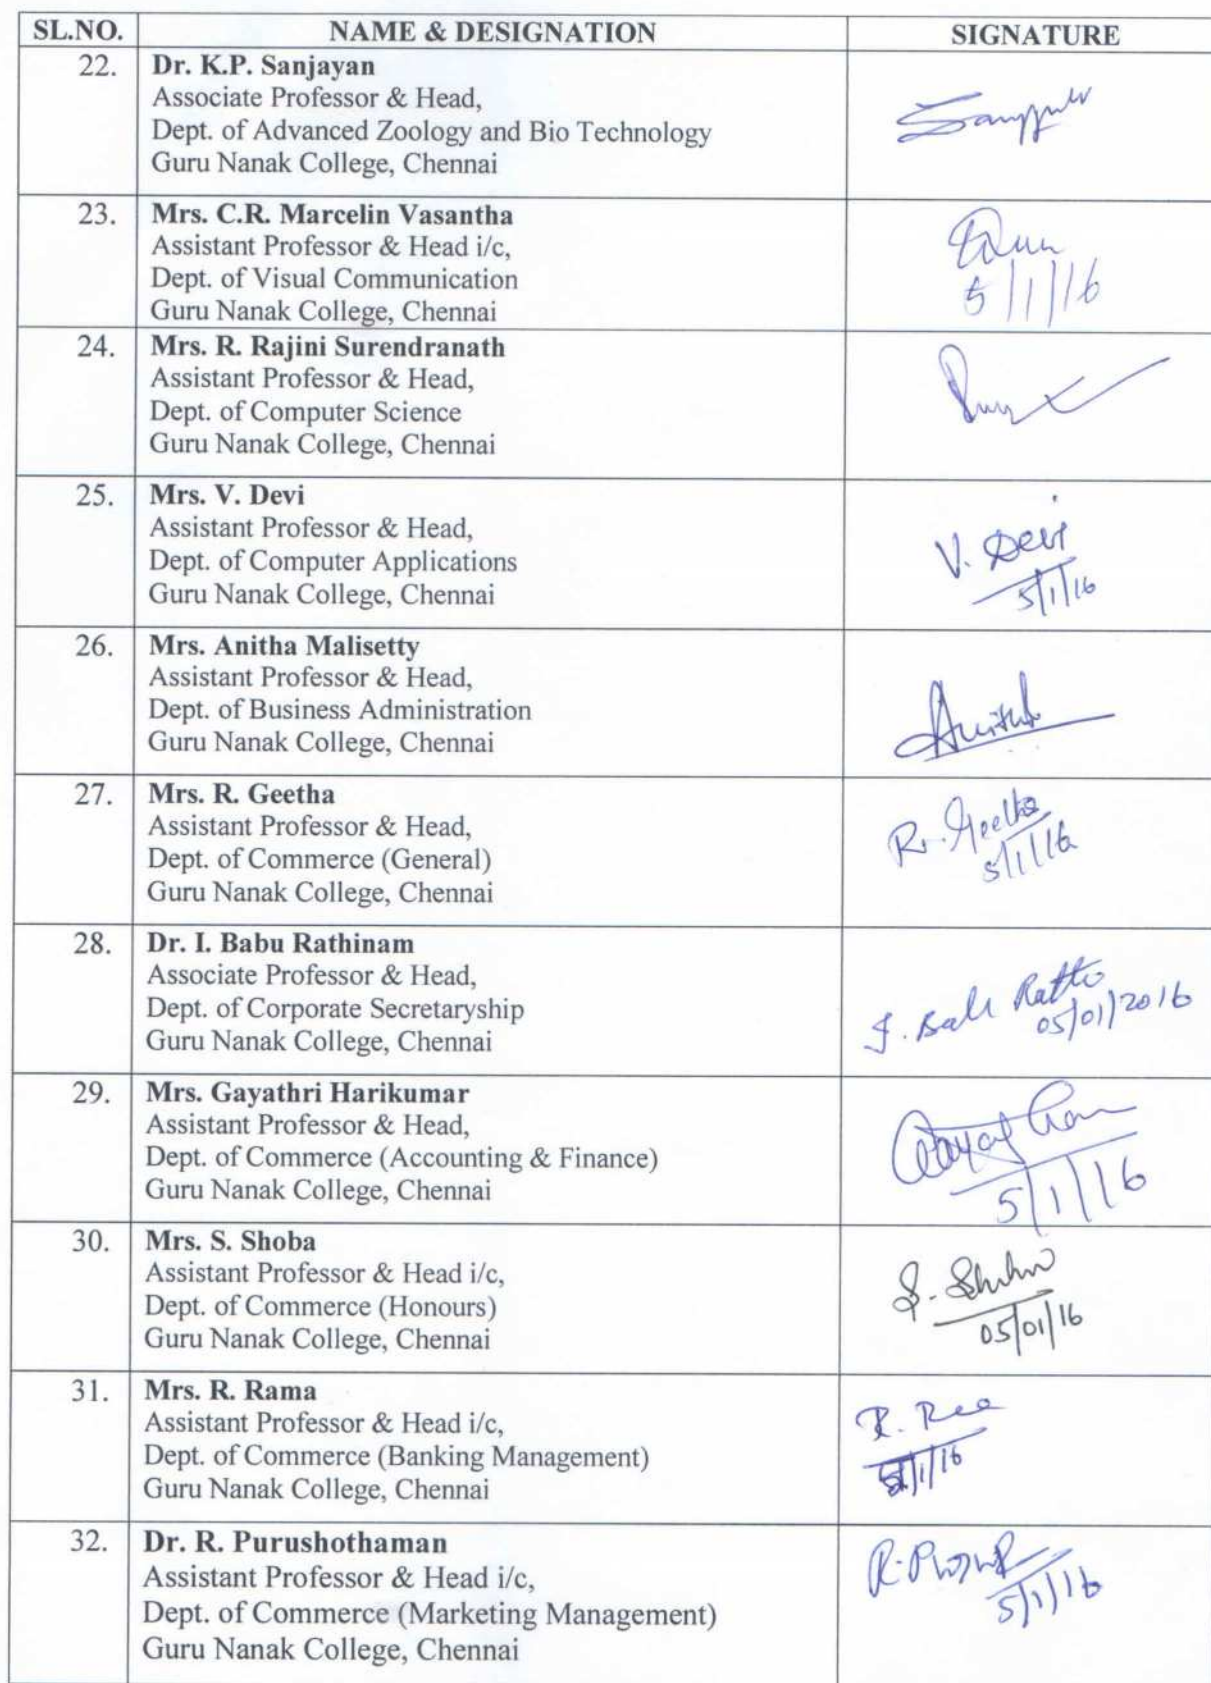 SL.NO. NAME & DESIGNATION SIGNATURE
22. Dr. K.P. Sanjayan
Associate Professor & Head,
Dept. of Advanced Zoology and Bio Technology
Guru Nanak College, Chennai
23. Mrs. C.R. Marcelin Vasantha
Assistant Professor & Head i/c,
Dept. of Visual Communication
Guru Nanak College, Chennai
5/1/16
24. Mrs. R. Rajini Surendranath
Assistant Professor & Head,
Dept. of Computer Science
Guru Nanak College, Chennai
25. Mrs. V. Devi
Assistant Professor & Head,
Dept. of Computer Applications
Guru Nanak College, Chennai
V. Devi
5/1/16
26. Mrs. Anitha Malisetty
Assistant Professor & Head,
Dept. of Business Administration
Guru Nanak College, Chennai
27. Mrs. R. Geetha
Assistant Professor & Head,
Dept. of Commerce (General)
Guru Nanak College, Chennai
R. Geetha
5/1/16
28. Dr. I. Babu Rathinam
Associate Professor & Head,
Dept. of Corporate Secretaryship
Guru Nanak College, Chennai
05/01/2016
29. Mrs. Gayathri Harikumar
Assistant Professor & Head,
Dept. of Commerce (Accounting & Finance)
Guru Nanak College, Chennai
5/1/16
30. Mrs. S. Shoba
Assistant Professor & Head i/c,
Dept. of Commerce (Honours)
Guru Nanak College, Chennai
05/01/16
31. Mrs. R. Rama
Assistant Professor & Head i/c,
Dept. of Commerce (Banking Management)
Guru Nanak College, Chennai
5/1/16
32. Dr. R. Purushothaman
Assistant Professor & Head i/c,
Dept. of Commerce (Marketing Management)
Guru Nanak College, Chennai
5/1/16